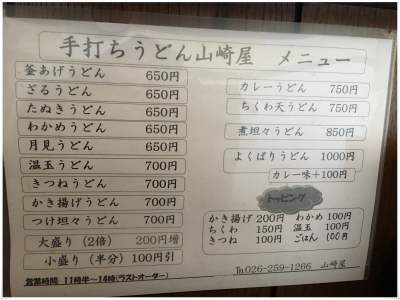 手打ちうどん山崎屋 メニュー
釜あげうどん 650円
ざるうどん 650円
たぬきうどん 650円
わかめうどん 650円
月見うどん 650円
温玉うどん 700円
きつねうどん 700円
かき揚げうどん 700円
つけ坦々うどん 700円
大盛り（2倍） 200円増
小盛り（半分）100円引
営業時間 11時半〜14時(ラストオーダー)
カレーうどん 750円
ちくわ天うどん 750円
煮坦々うどん 850円
よくばりうどん 1000円
カレー味＋100円
トッピング
かき揚げ 200円 わかめ 100円
ちくわ 150円 温玉 100円
きつね 100円 ごはん 100円
℡026-259-1266 山崎屋